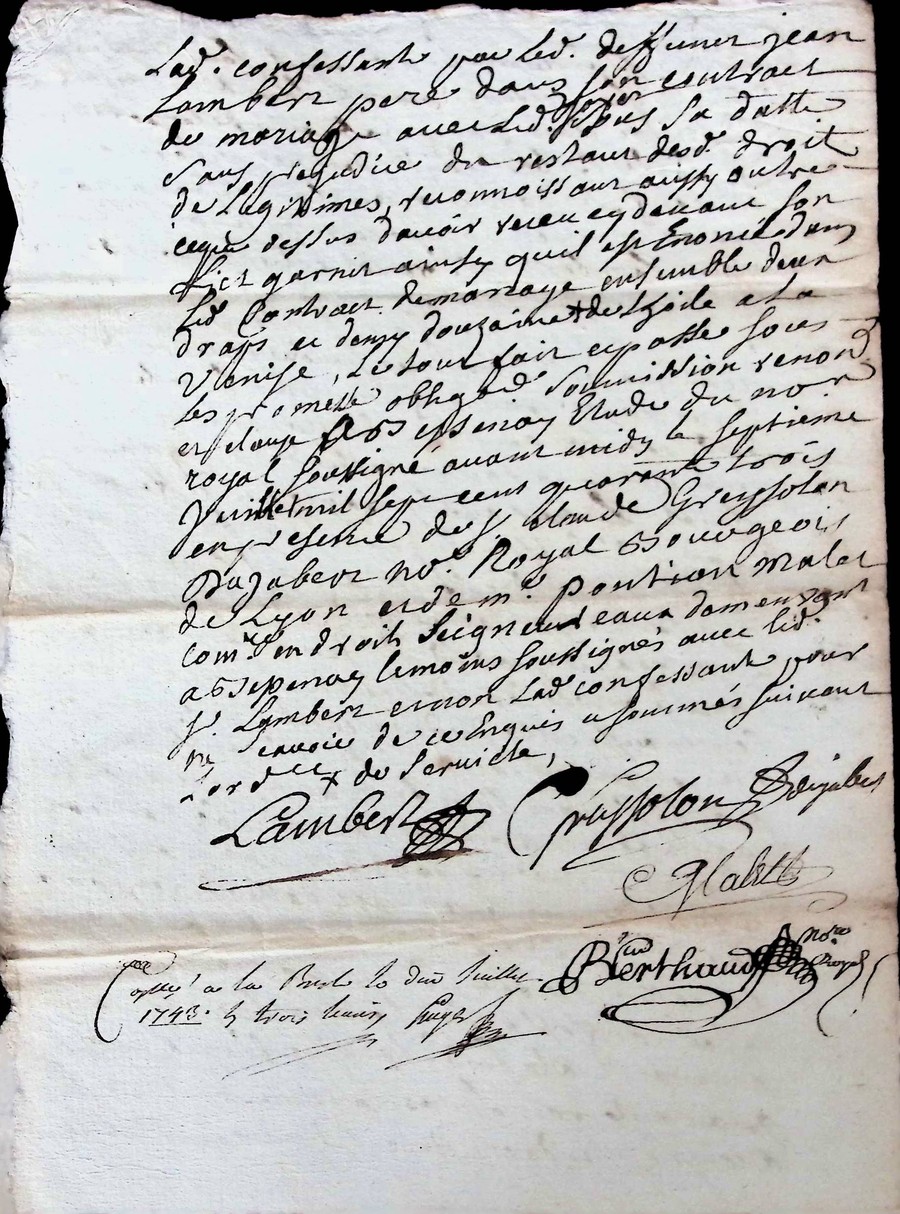 Lad. confessante par led. deffunct jean
Lambert pere dans son contract
de mariage avec led. Goyer sous sa datte
sans prejudice du restant desd. droit
de Legitimes, reconnoissant aussy outre
ceque dessus d'avoir receu cy devant son
Lict garnit ainsy quil est Enoncé dans
Led Contract de mariage ensemble deux
draps et demy douzaine de
Venise, Le tout fait et passé sous
Les promesse obliga.on soumission renon.on
et clause A Bessenay Etude du no.re
royal soussigné avant midy le septieme
Juillet mil sept cent quarante trois
en presence de s.r claude Greyssolon
Dajabert no.re Royal Bourgeois
de Lyon et de m.e pontian Malet
com.re en droits Seigneureaux demeurant
a Bessenay temoins soussignés avec led.
s.r Lambert et non Lad confessante pour
ne scavoir de ce Enquis et sommés suivant
Lord.ce de service,
Lambert Greyssolon Dajabert
Malet
Berthaud No.re royal
a la le dix Juillet
1743.